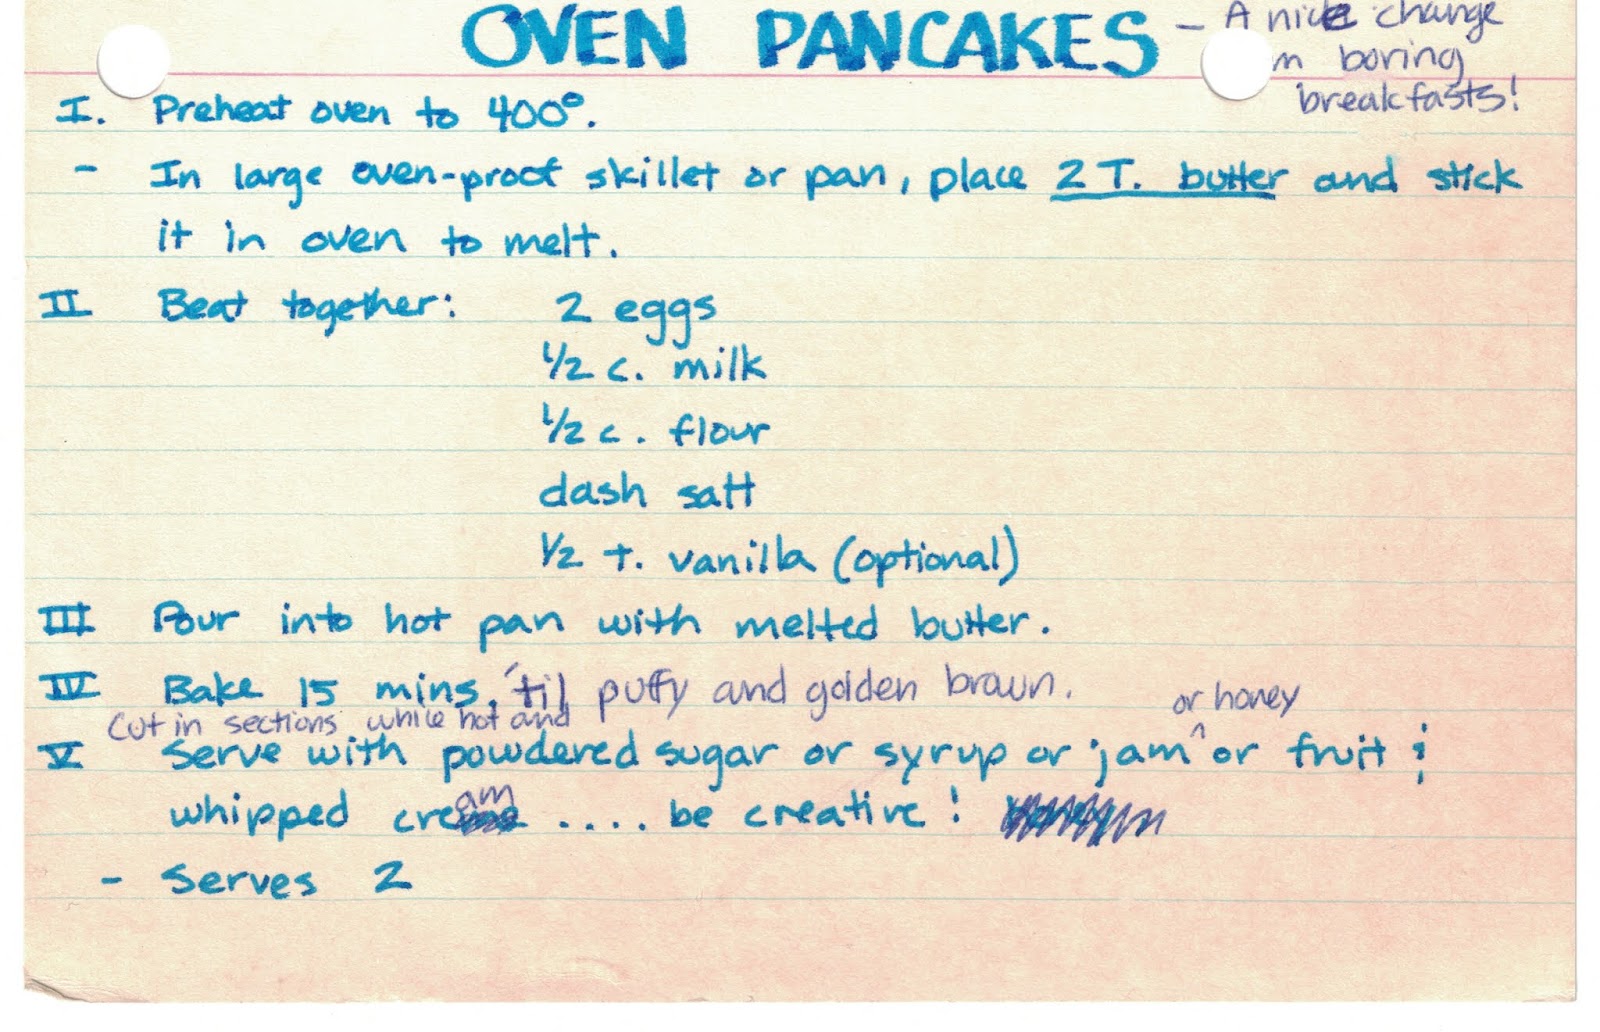 OVEN PANCAKES - A nice change
m boring
breakfasts!
I. Preheat oven to 400°.
- In large oven-proof skillet or pan, place 2 T. butter and stick
it in oven to melt.
II Beat together: 2 eggs
1/2 c. milk
1/2 c. flour
dash salt
1/2 t. vanilla (optional)
III Pour into hot pan with melted butter.
IV Bake 15 mins, 'til puffy and golden brown.
or honey
Cut in sections while hot and
V Serve with powdered sugar or syrup or jam ^ or fruit &
whipped cream .... be creative!
- Serves 2